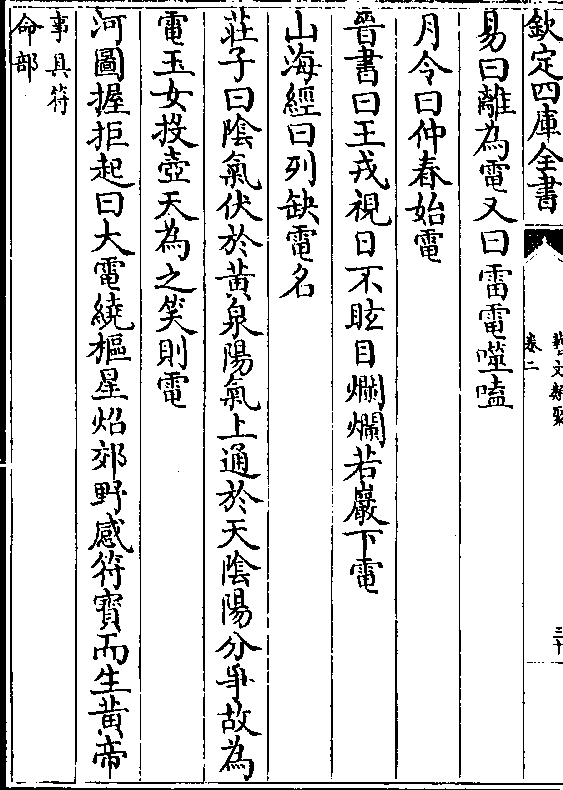 欽定四庫全書
藝文類聚
卷二
三十
易曰離為電又曰雷電噬嗑
月令曰仲春始電
晉書曰王戎視日不眩目爛爛若巖下電
山海經曰列缺電名
莊子曰陰氣伏於黃泉陽氣上通於天陰陽分爭故為
電玉女投壺天為之笑則電
河圖握拒起曰大電繞樞星炤郊野感符寶而生黃帝
事具符
命部